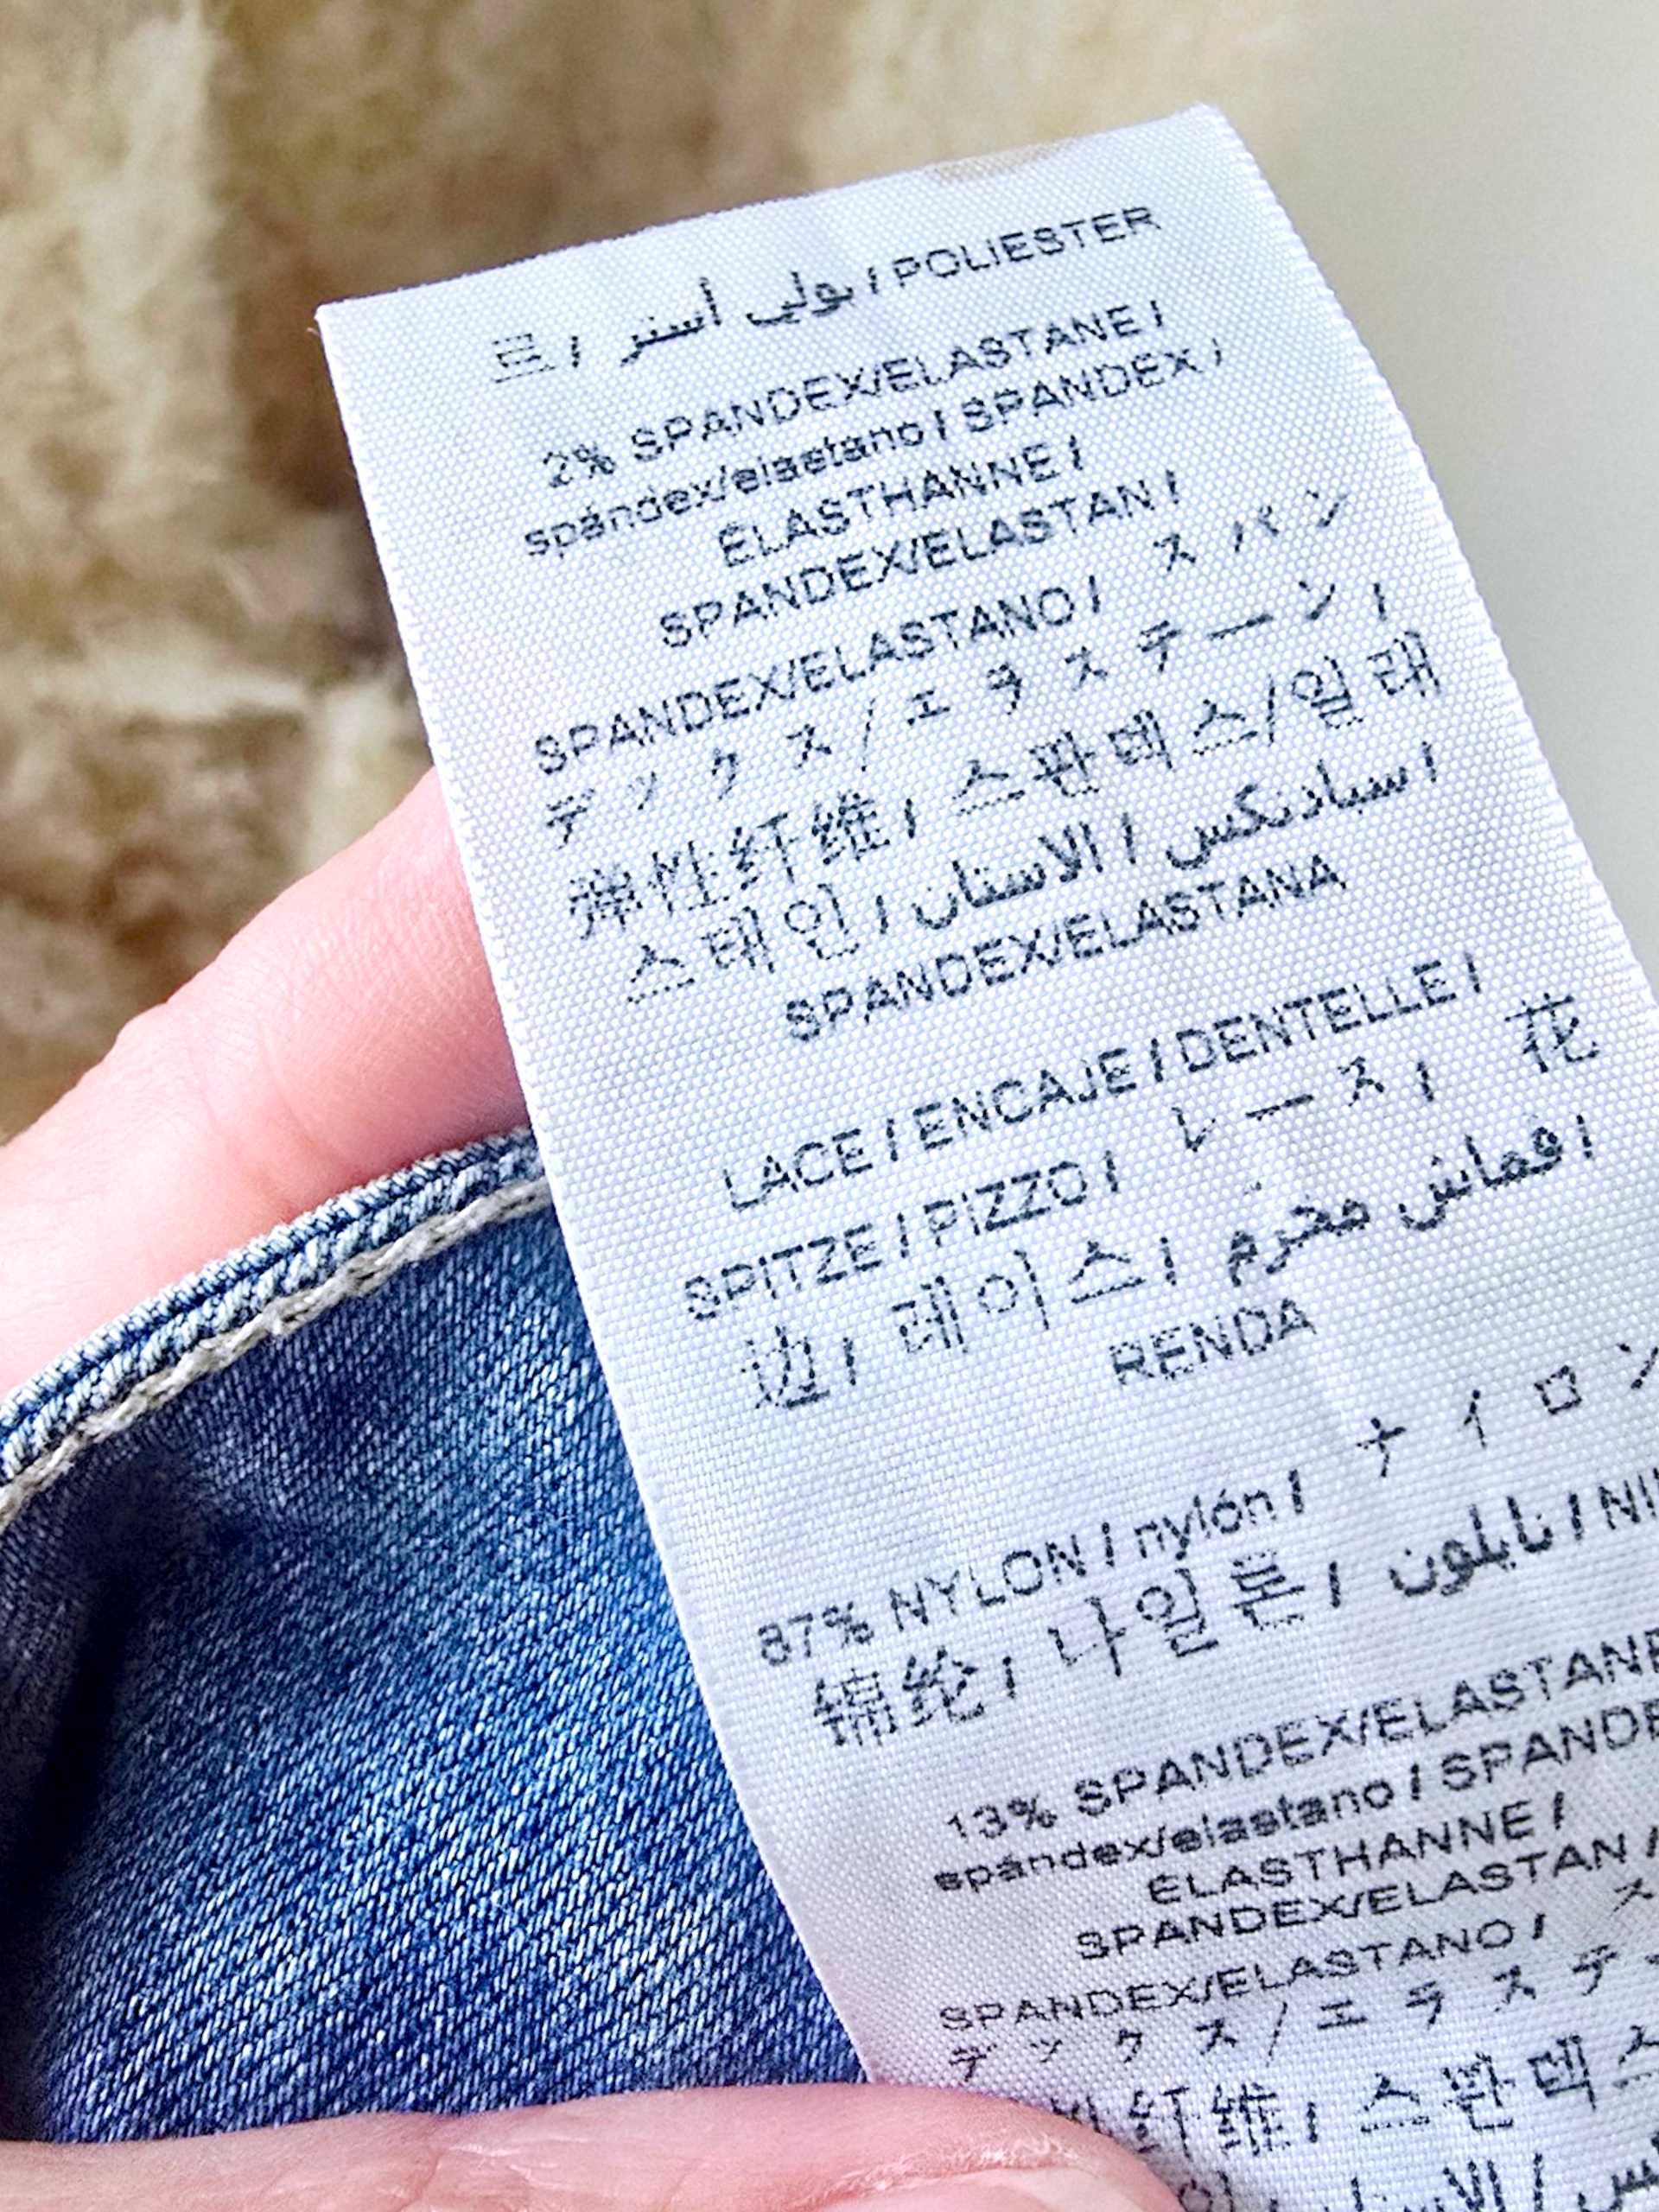 르 / بولي أستر / POLIESTER
2% SPANDEX/ELASTANE /
spándex/elastano / SPANDEX /
ÉLASTHANNE /
SPANDEX/ELASTAN /
SPANDEX/ELASTANO / スパン
デックス/エラステーン /
弹性纤维 / 스판덱스/일래
스테인 / اسبادنكس / الاستان
SPANDEX/ELASTANA
LACE / ENCAJE / DENTELLE /
SPITZE / PIZZO / レース / 花
边 / 레이스 / اقماش مخرم
RENDA
87% NYLON / nylón / ナイロン
锦纶 / 나일론 / نايلون / NI
13% SPANDEX/ELASTANE
spándex/elastano / SPANDE
ÉLASTHANNE /
SPANDEX/ELASTAN /
SPANDEX/ELASTANO / ス
デックス/エラステ
纤维 / 스판덱스